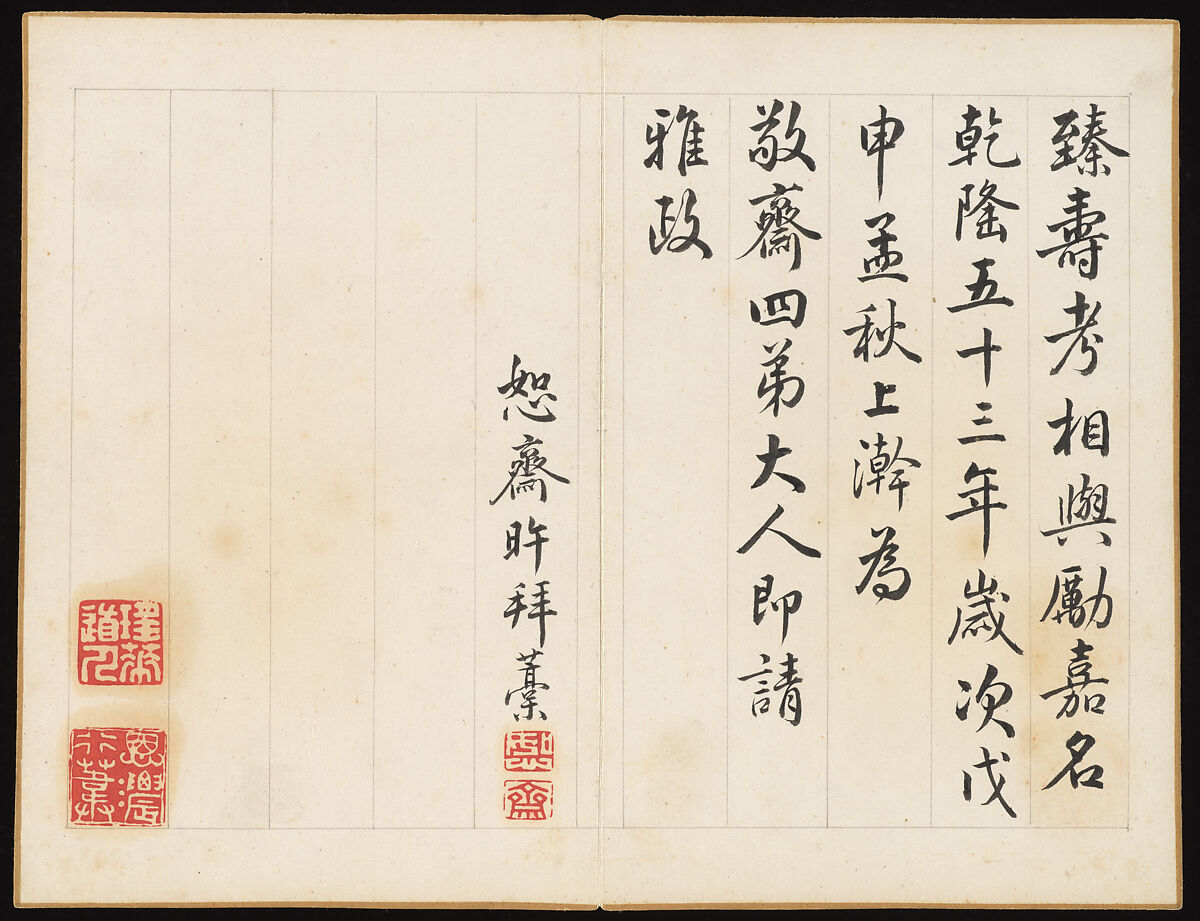 臻壽考相與勵嘉名
乾隆五十三年歲次戊
申孟秋上澣為
敬齋四弟大人即請
雅政
恕齋昨拜藁
恕齋